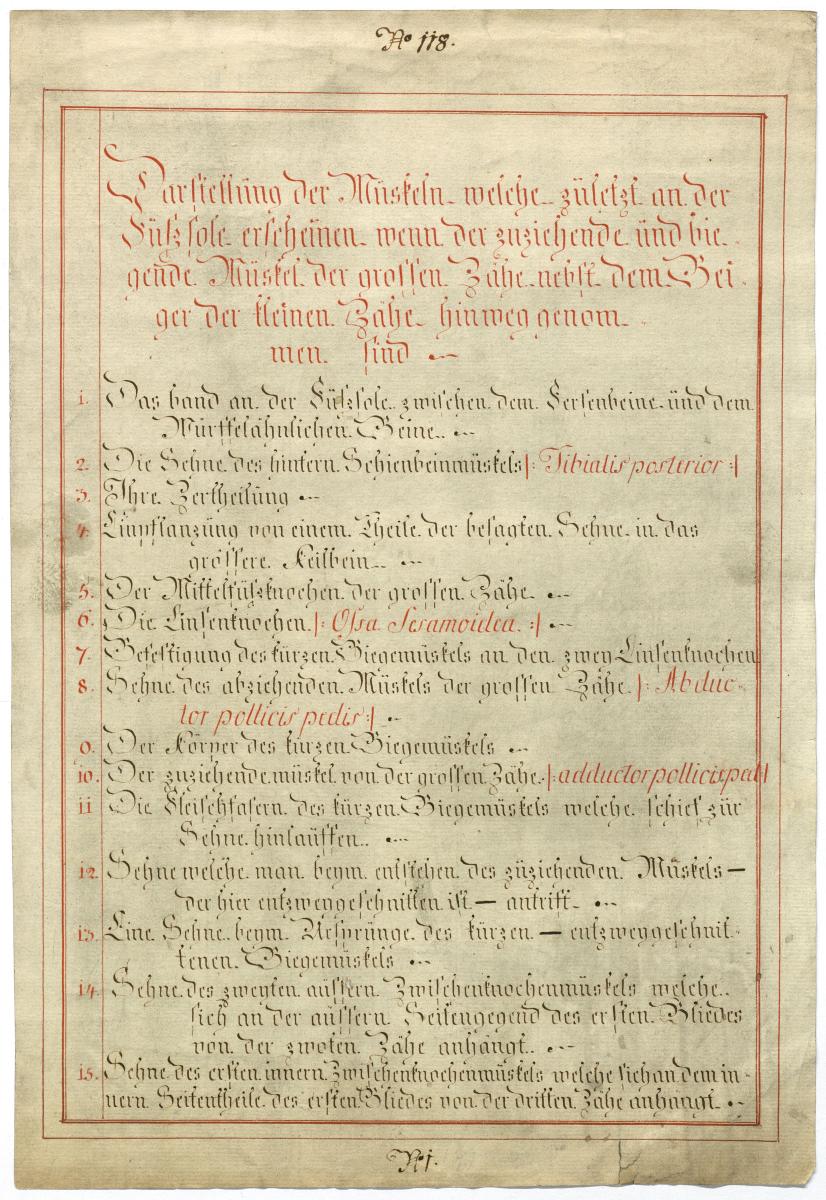 No 118.
Darstellung der Müskeln welche zületzt an der
Füßsole erscheinen wenn der zuziehende ünd bie-
gende Müskel der grossen Zähe nebst dem Bei-
ger der kleinen Zähe hinweg genom-
men sind
1. Das band an der Füßsole zwischen dem Fersenbeine ünd dem
Würffelähnlichen Beine.
2. Die Sehne des hintern Schienbeinmüskels |: Tibialis posterior :|
3. Ihre Zertheilüng
4. Einpflanzüng von einem Theile der besagten Sehne in das
grössere Keilbein
5. Der Mittelfüßknochen der grossen Zähe
6. Die Linsenknochen |: Ossa Sesamoidea. :|
7. Befestigüng des kürzen Biegemüskels an den zwey Linsenknochen
8. Sehne des abziehenden Müskels der grossen Zähe |: Abduc-
tor pollicis pedis :|
9. Der Körper des kürzen Biegemüskels
10. Der zuziehende müskel von der grossen Zähe |: adductor pollicis ped :|
11 Die Fleischfasern des kürzen Biegemüskels welche schief zür
Sehne hinlauffen.
12. Sehne welche man beym entstehen des züziehenden Müskels —
der hier entzweygeschnitten ist — antrift
13. Eine Sehne beym Ursprünge des kürzen — entzweygeschnit-
tenen Biegemüskels
14. Sehne des zweyten aüssern Zwischenknochenmüskels welche
sich an der aüssern Seitengegend des ersten Gliedes
von der zwoten Zähe anhangt.
15. Sehne des ersten innern Zwischenknochenmüskels welche sich an dem in-
nern Seitentheile des ersten Gliedes von der dritten Zähe anhangt
No 1.